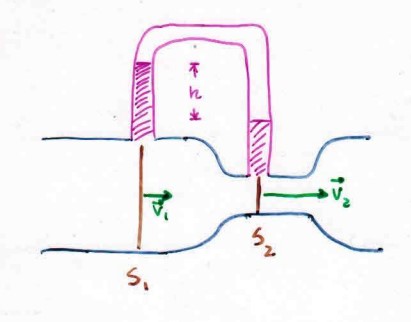 h
v⃗₁
v⃗₂
S₁
S₂